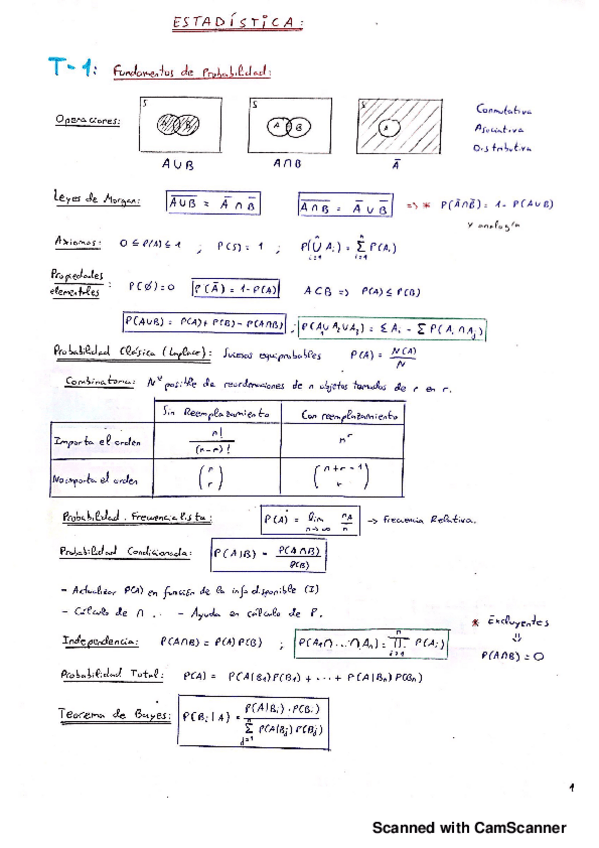 ESTADÍSTICA:
T-1: Fundamentos de Probabilidad:
Operaciones:
S S S
A B A B A
A∪B A∩B Ā
Conmutativa
Asociativa
Distributiva
Leyes de Morgan: \overline{A∪B} = Ā ∩ B̄ \overline{A∩B} = Ā ∪ B̄ => * P(Ā∩B̄) = 1 - P(A∪B)
y analogía
Axiomas: 0 ≤ P(A) ≤ 1 ; P(S) = 1 ; P(⋃_{i=1}^{n} A_i) = Σ_{i=1}^{n} P(A_i)
Propiedades elementales: P(∅)=0 P(Ā) = 1-P(A) A⊂B => P(A) ≤ P(B)
P(A∪B) = P(A)+P(B)-P(A∩B) ; P(A₁∪A₂∪A₃) = Σ A_i - Σ P(A_i ∩ A_j)
Probabilidad Clásica (Laplace): Sucesos equiprobables P(A) = N(A)/N
Combinatoria: Nº posible de reordenaciones de n objetos tomados de r en r.
Sin Reemplazamiento Con reemplazamiento
Importa el orden n!/(n-r)! n^r
No importa el orden (n r) (n+r-1 r)
Probabilidad Frecuencialista: P(A) = lim_{n→∞} n_A/n → Frecuencia Relativa.
Probabilidad Condicionada: P(A|B) = P(A∩B)/P(B)
- Actualizar P(A) en función de la info disponible (I)
- Cálculo de ∩ .. - Ayuda en cálculo de P.
* Excluyentes
⇓
P(A∩B) = 0
Independencia: P(A∩B) = P(A)P(B) ; P(A₁∩...∩A_n) = ∏_{i=1}^{n} P(A_i)
Probabilidad Total: P(A) = P(A|B₁)P(B₁) + ... + P(A|B_n)P(B_n)
Teorema de Bayes: P(B_i|A) = P(A|B_i)·P(B_i) / Σ_{j=1}^{n} P(A|B_j)P(B_j)
1
Scanned with CamScanner